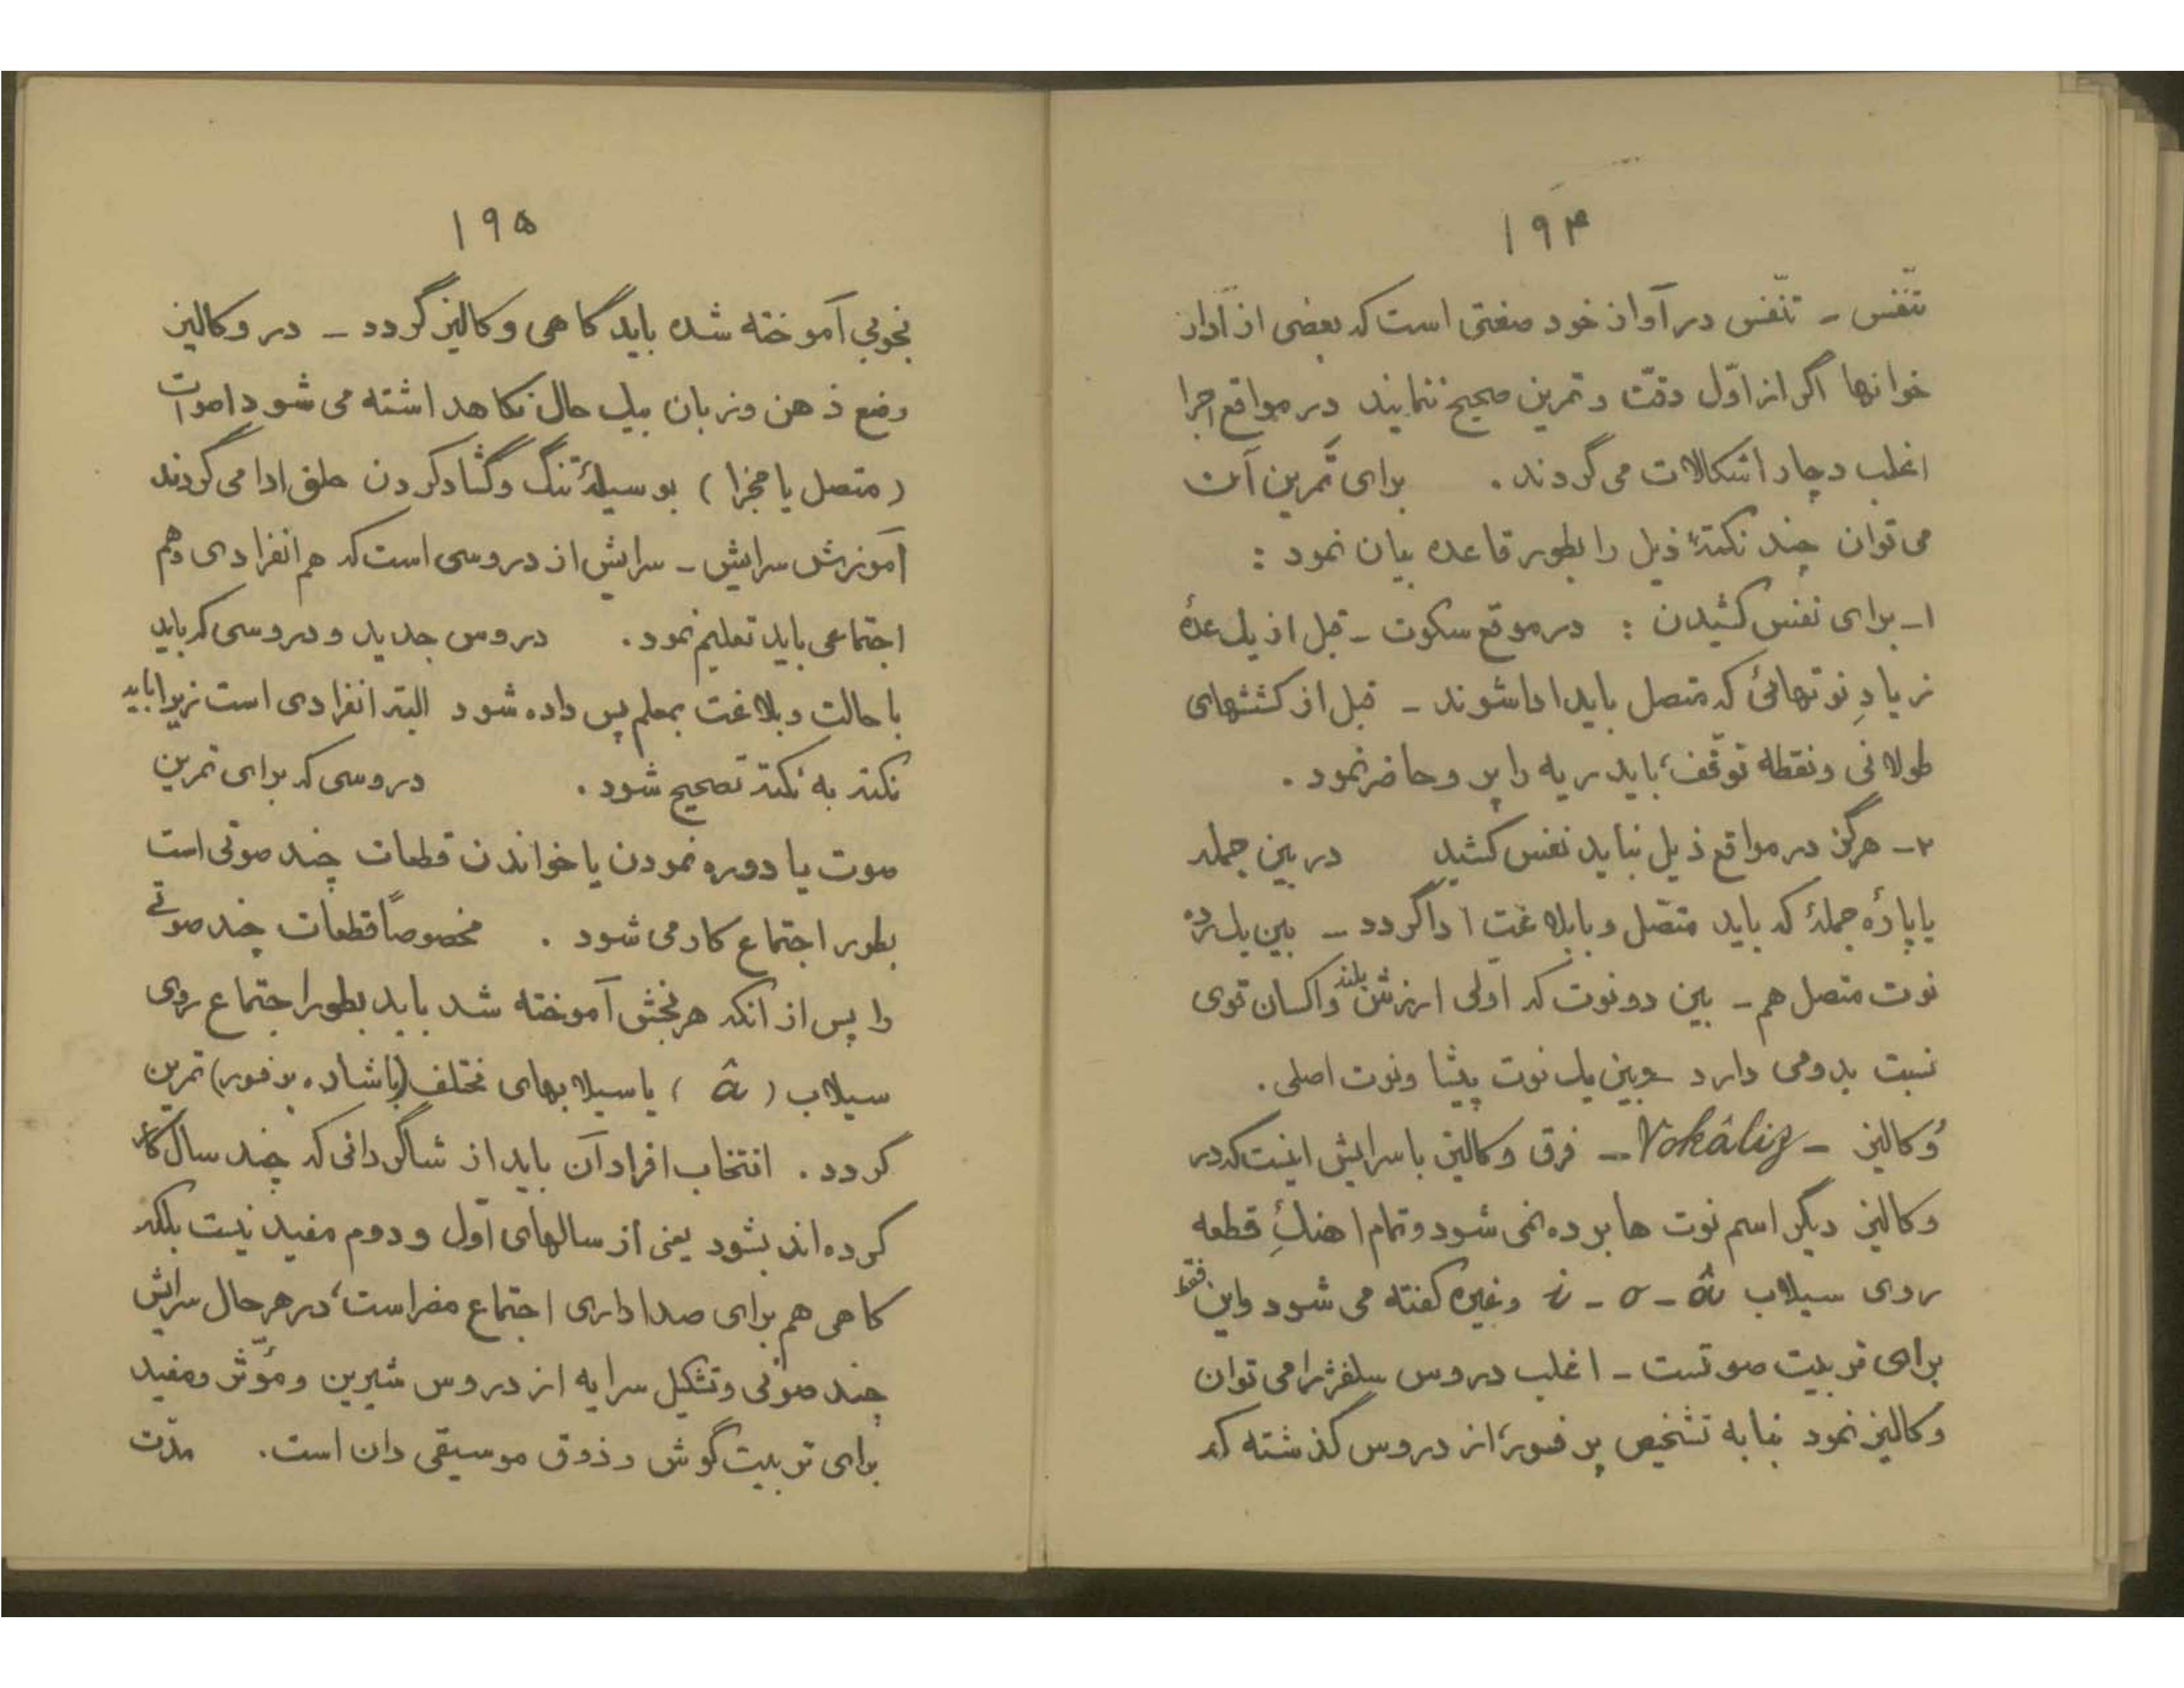 ۱۹۴
تنّفس - تنّفس در آواز خود صنعتی است که بعضی از آواز
خوانها اگر از اوّل دقّت و تمرین صحیح ننمایند در مواقع اجرا
اغلب دچار اشکالات می گردند . برای تمرین آن
می توان چند نکتهٔ ذیل را بطور قاعده بیان نمود :
۱- برای نفس کشیدن : در موقع سکوت - قبل از یک عدهٔ
زیادِ نوتهائی که متصل باید ادا شوند - قبل از کششهای
طولانی و نقطه توقّف، باید ریه را پر و حاضر نمود .
۲- هرگز در مواقع ذیل نباید نفس کشید در بین جمله
یا پارهٔ جملهٔ که باید متصّل و با بلاغت ادا گردد - بین یک رده
نوت متصل هم - بین دو نوت که اولی ارزش بلند و اکسان قوی
نسبت بدومی دارد - و بین یک نوت پیشا و نوت اصلی .
وُکالیز - Vokâliz - فرق وکالیز با سرایش اینست که در
وکالیز دیگر اسم نوت ها برده نمی شود و تمام اهنگِ قطعه
روی سیلاب â - o - i و غیره گفته می شود و این فقط
برای تربیت صوتست - اغلب دروس سلفژ را می توان
وکالیز نمود بنا به تشخیص پرفسور، از دروس گذشته که
۱۹۵
بخوبی آموخته شده باید گاهی وکالیز گردد - در وکالیز
وضع ذهن و زبان بیک حال نگاهداشته می شود و اصوات
( متصل یا مجزا ) بوسیلهٔ تنگ و گشاد کردن حلق ادا می گردند
آموزش سرایش - سرایش از دروسی است که هم انفرادی و هم
اجتماعی باید تعلیم نمود . دروس جدید و دروسی که باید
با حالت و بلاغت بمعلم پس داده شود البته انفرادی است زیرا باید
نکته به نکته تصحیح شود . دروسی که برای تمرین
صوت یا دوره نمودن یا خواندن قطعات چند صوتی است
بطور اجتماع کار می شود . مخصوصاً قطعات چند صوتی
را پس از انکه هر بخش آموخته شد باید بطور اجتماع روی
سیلاب ( â ) یا سیلابهای مختلف (باشاره پرفسور) تمرین
گردد . انتخاب افراد آن باید از شاگردانی که چند سال کار
کرده اند بشود یعنی از سالهای اوّل و دوم مفید نیست بلکه
گاهی هم برای صدا داری اجتماع مضر است، در هر حال سرایش
چند صوتی و تشکیل سرایه از دروس شیرین و مؤثّر و مفید
برای تربیت گوش و ذوق موسیقی دان است . مدّت